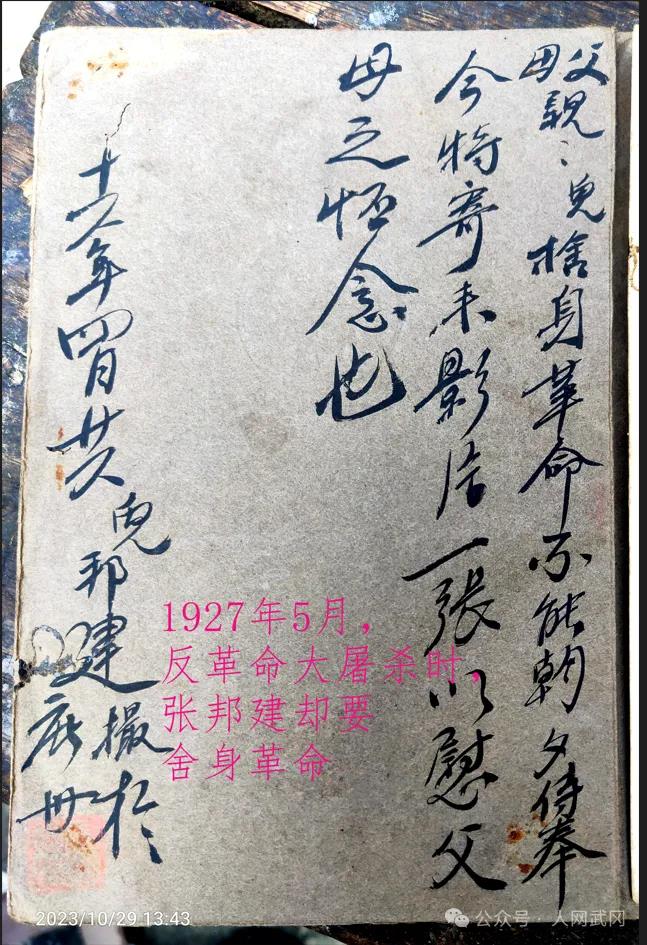 父母親兒捨身革命不能朝夕侍奉
今特寄来影片一張以慰父
母之恆念也
十六年四月廿 兒邦建撮於
1927年5月，
反革命大屠杀时，
张邦建却要
舍身革命
2023/10/29 13:43
公众号 · 人网武网